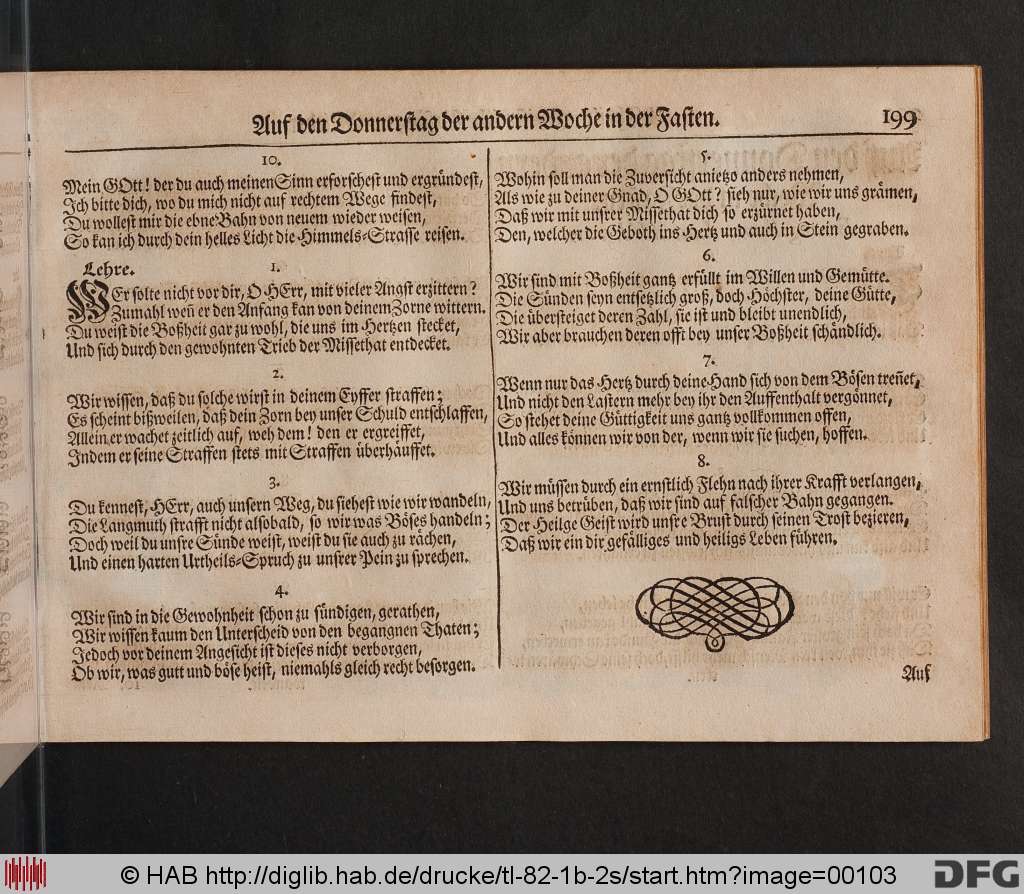 Auf den Donnerstag der andern Woche in der Fasten. 199
10.
Mein GOtt! der du auch meinen Sinn erforschest und ergründest,
Ich bitte dich, wo du mich nicht auf rechtem Wege findest,
Du wollest mir die ebne Bahn von neuem wieder weisen,
So kan ich durch dein helles Licht die Himmels-Strasse reisen.
Lehre. 1.
WEr solte nicht vor dir, O HErr, mit vieler Angst erzittern?
Zumahl weñ er den Anfang kan von deinem Zorne wittern.
Du weist die Boßheit gar zu wohl, die uns im Hertzen stecket,
Und sich durch den gewohnten Trieb der Missethat entdecket.
2.
Wir wissen, daß du solche wirst in deinem Eyffer straffen;
Es scheint bißweilen, daß dein Zorn bey unser Schuld entschlaffen,
Allein er wachet zeitlich auf, weh dem! den er ergreiffet,
Indem er seine Straffen stets mit Straffen überhäuffet.
3.
Du kennest, HErr, auch unsern Weg, du siehest wie wir wandeln,
Die Langmuth strafft nicht alsobald, so wir was Böses handeln;
Doch weil du unsre Sünde weist, weist du sie auch zu rächen,
Und einen harten Urtheils-Spruch zu unsrer Pein zu sprechen.
4.
Wir sind in die Gewohnheit schon zu sündigen, gerathen,
Wir wissen kaum den Unterscheid von den begangnen Thaten;
Jedoch vor deinem Angesicht ist dieses nicht verborgen,
Ob wir, was gutt und böse heist, niemahls gleich recht besorgen.
5.
Wohin soll man die Zuversicht anietzo anders nehmen,
Als wie zu deiner Gnad, O GOtt? sieh nur, wie wir uns grämen,
Daß wir mit unsrer Missethat dich so erzürnet haben,
Den, welcher die Geboth ins Hertz und auch in Stein gegraben.
6.
Wir sind mit Boßheit gantz erfüllt im Willen und Gemütte.
Die Sünden seyn entsetzlich groß, doch Höchster, deine Gütte,
Die übersteiget deren Zahl, sie ist und bleibt unendlich,
Wir aber brauchen deren offt bey unser Boßheit schändlich.
7.
Wenn nur das Hertz durch deine Hand sich von dem Bösen treñet,
Und nicht den Lastern mehr bey ihr den Auffenthalt vergönnet,
So stehet deine Güttigkeit uns gantz vollkommen offen,
Und alles können wir von der, wenn wir sie suchen, hoffen.
8.
Wir müssen durch ein ernstlich Flehn nach ihrer Krafft verlangen,
Und uns betrüben, daß wir sind auf falscher Bahn gegangen.
Der Heilge Geist wird unsre Brust durch seinen Trost bezieren,
Daß wir ein dir gefälliges und heiligs Leben führen.
Auf
© HAB http://diglib.hab.de/drucke/tl-82-1b-2s/start.htm?image=00103
DFG